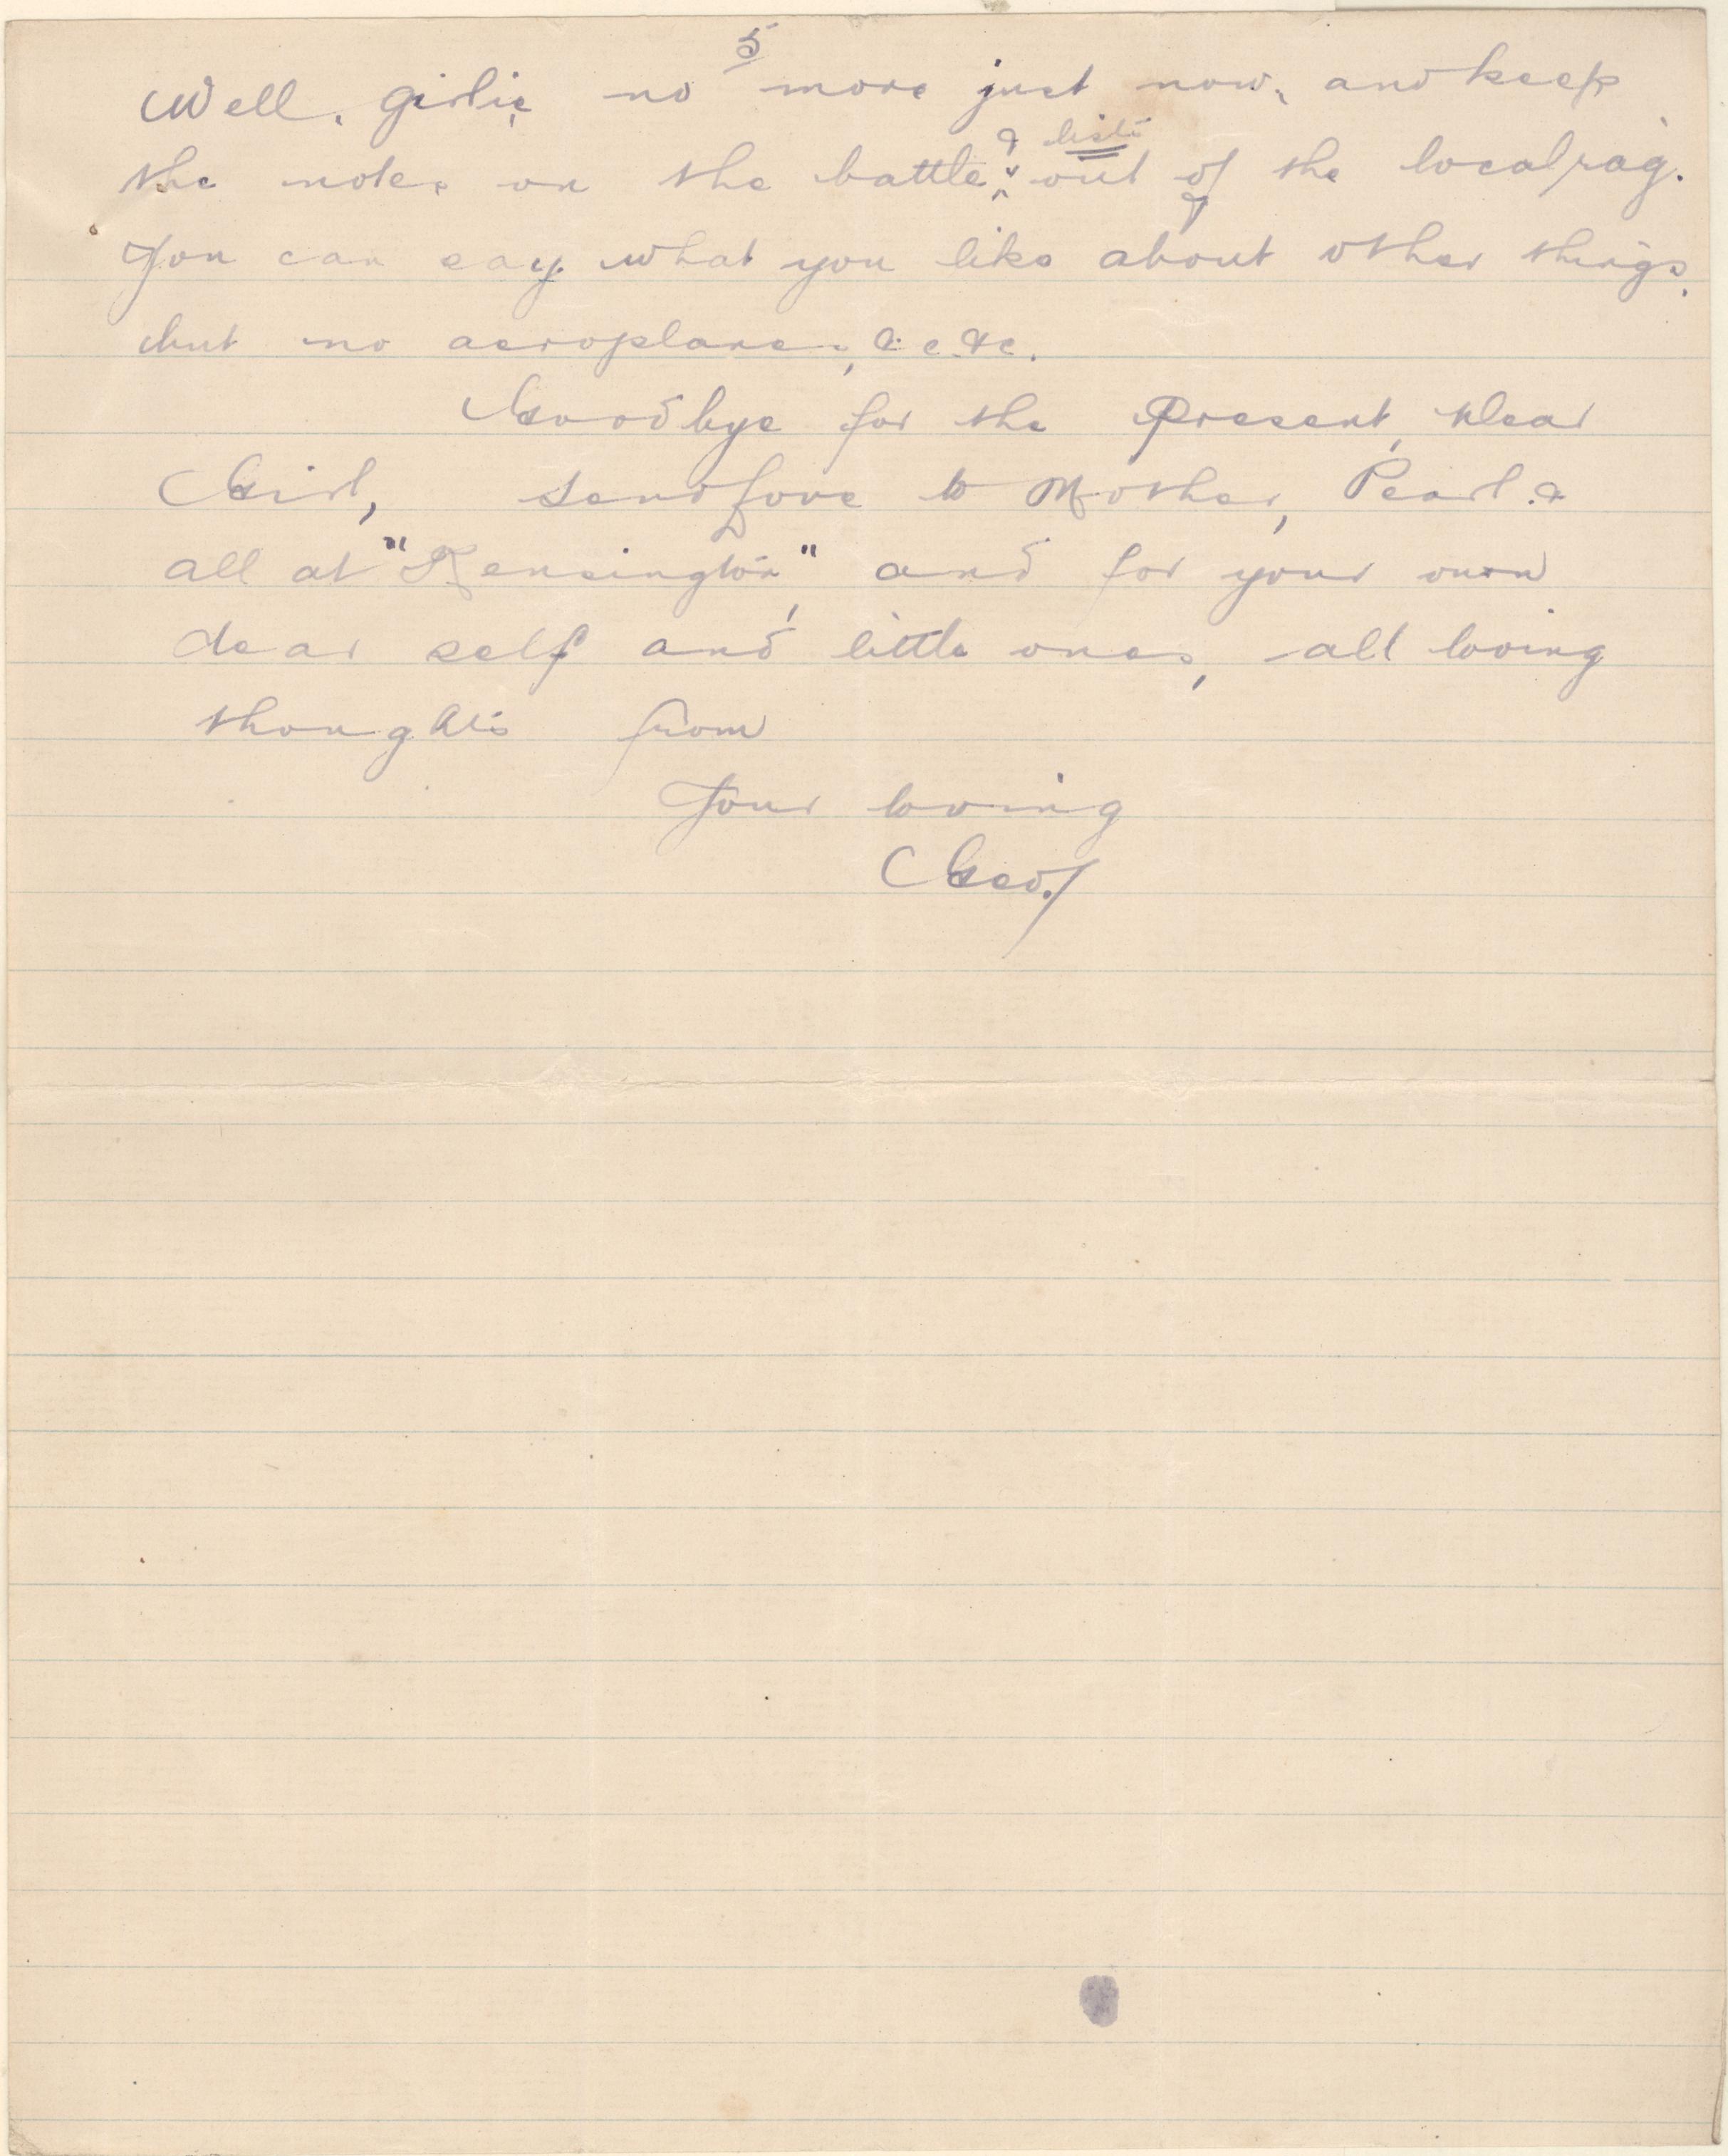 5
Well, girlie, no more just now, and keep
& lists
the notes on the battle, out of the local rag.
You can say what you like about other things,
but no aeroplanes, &c. &c.
Goodbye for the Present, dear
Girl, send love to Mother, Pearl &
all at "Kensington", and for your own
dear self and little ones, all loving
thoughts from
Your loving
Geo.